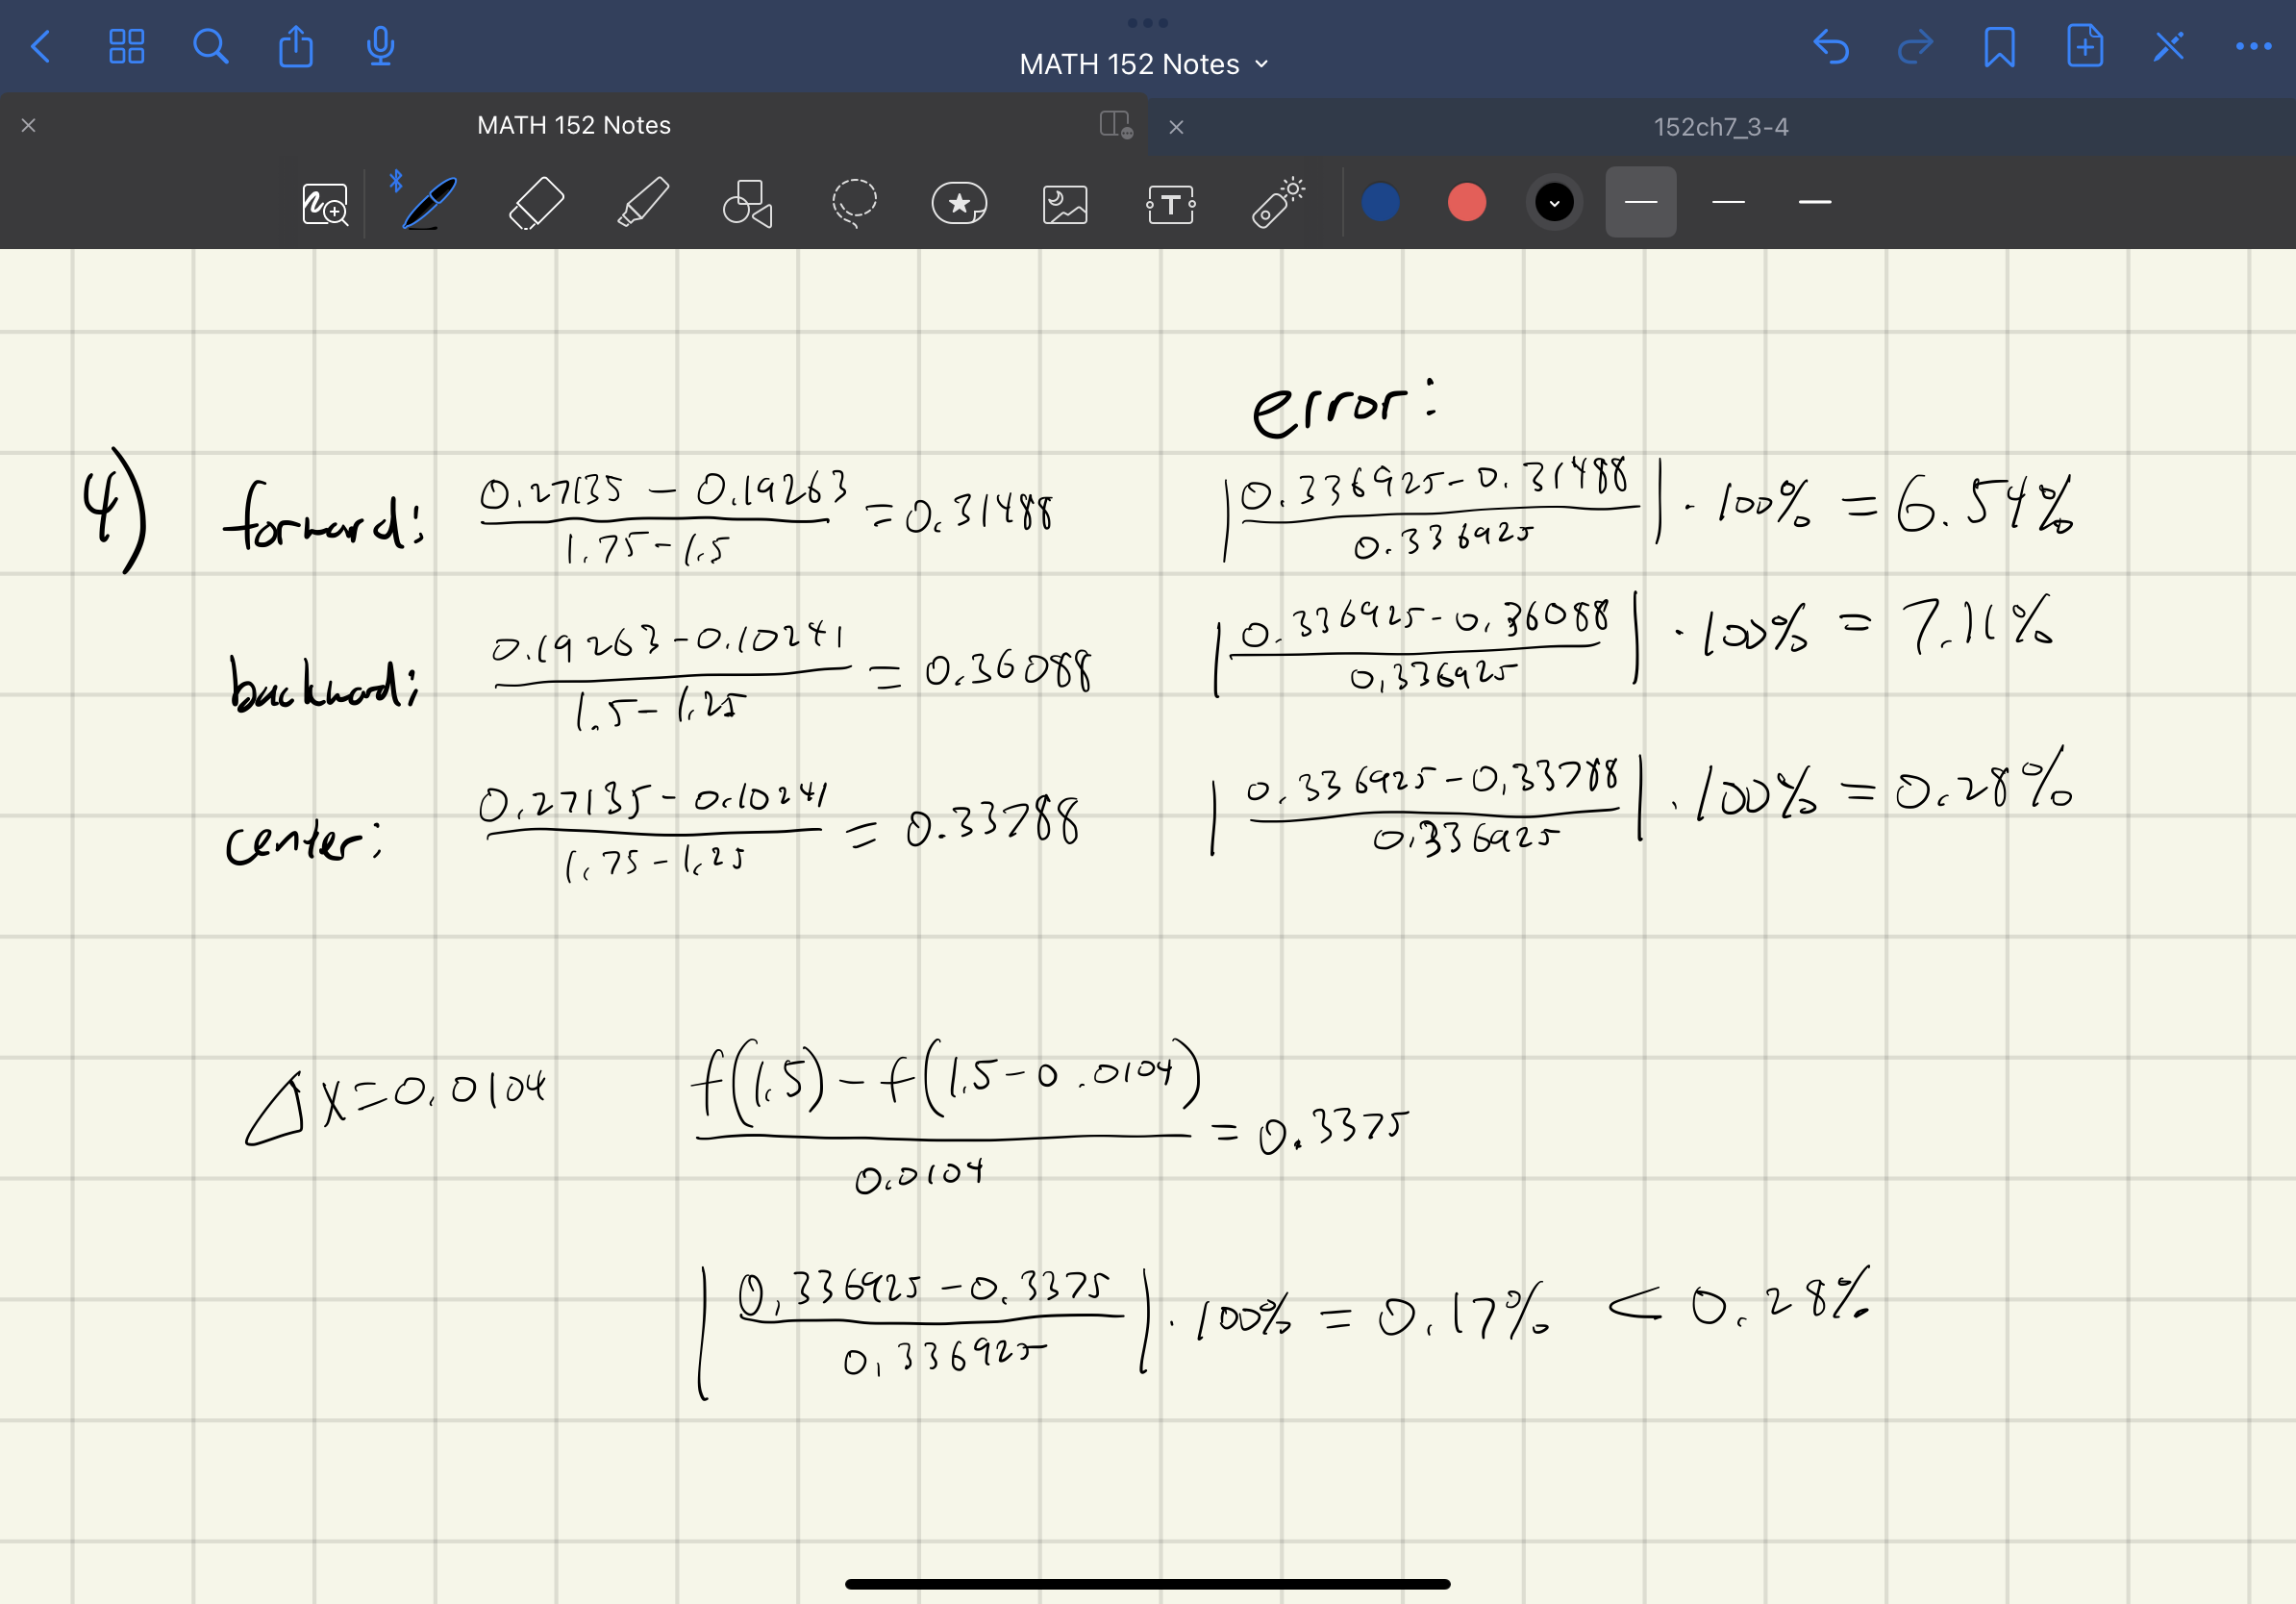 MATH 152 Notes
MATH 152 Notes
152ch7_3-4
T
error:
4) forward: (0.27135 - 0.19263)/(1.75 - 1.5) = 0.31488 |(0.336925 - 0.31488)/0.336925| · 100% = 6.54%
backward: (0.19263 - 0.10241)/(1.5 - 1.25) = 0.36088 |(0.336925 - 0.36088)/0.336925| · 100% = 7.11%
center: (0.27135 - 0.10241)/(1.75 - 1.25) = 0.33788 |(0.336925 - 0.33788)/0.336925| · 100% = 0.28%
△x = 0.0104 (f(1.5) - f(1.5 - 0.0104))/0.0104 = 0.3375
|(0.336925 - 0.3375)/0.336925| · 100% = 0.17% < 0.28%